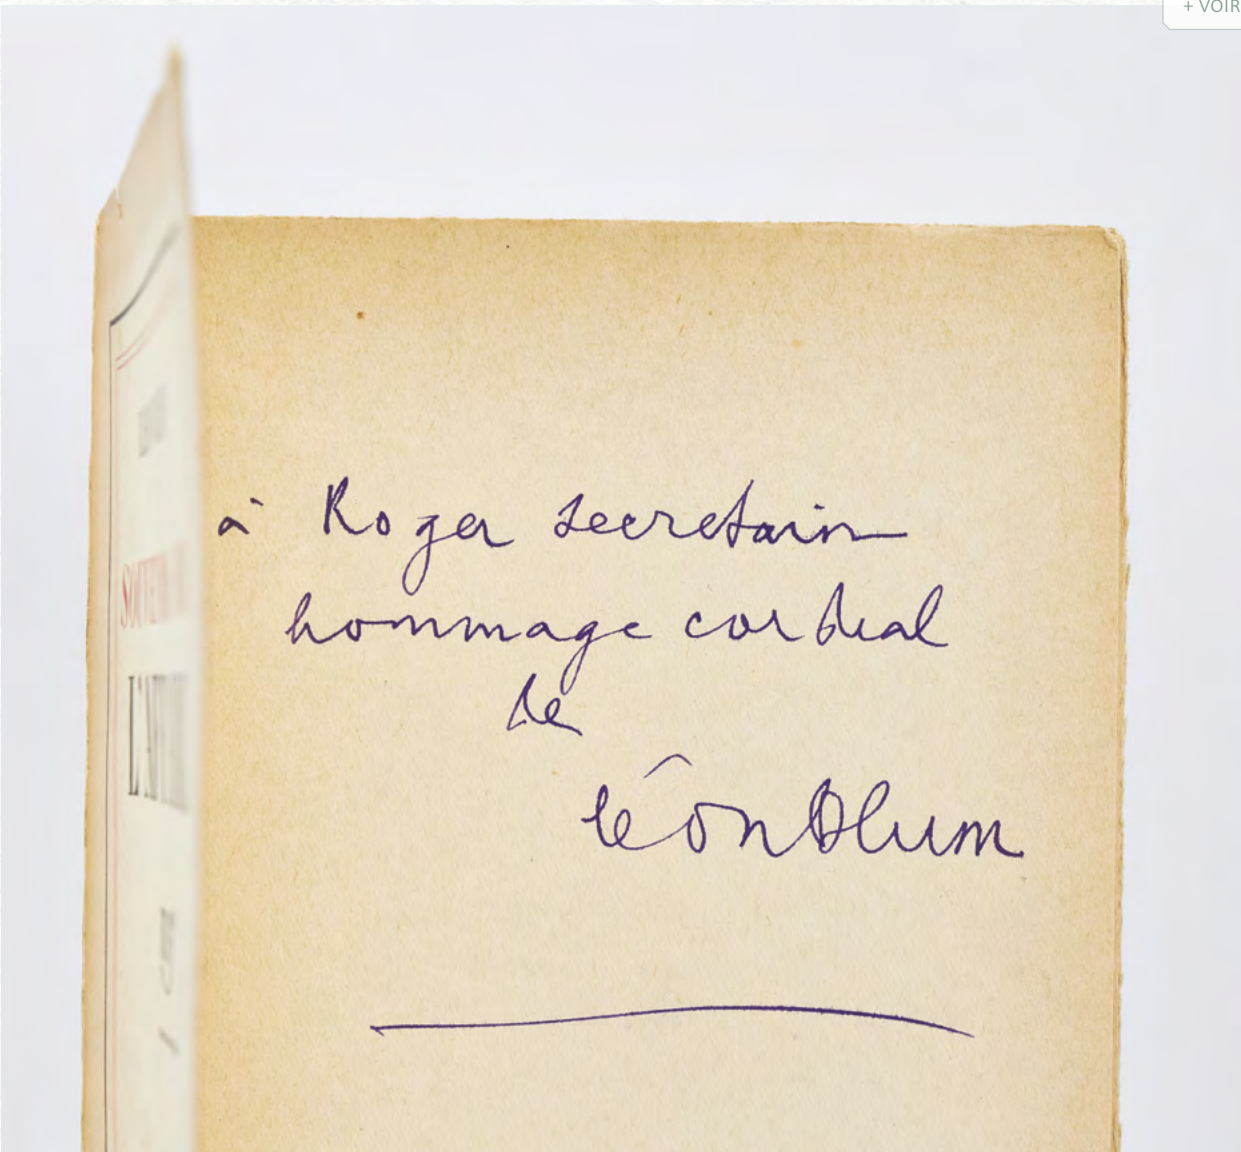 + VOIR
à Roger Secretain
hommage cordial
de
Léon Blum